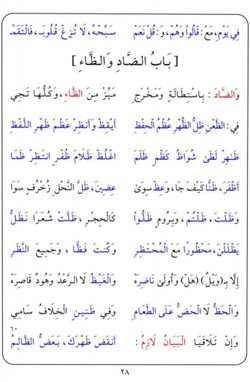 فِي يَوْمِ، مَعْ: قَالُوا وَهُمْ، وَ: قُلْ نَعَمْ سَبِّحْهُ، لَا تُزِغْ قُلُوبَـ، فَالْتَقَمْ
[ بَابُ الضَّادِ وَالظَّاءِ ]
وَالضَّادَ: بِاسْتِطَالَةٍ وَمَخْرَجِ مَيِّزْ مِنَ الظَّاءِ، وَكُلُّهَا تَجِي
فِي: الظَّعْنِ ظِلُّ الظُّهْرِ عُظْمُ الْحِفْظِ أَيْقِظْ وَأَنْظِرْ عَظْمَ ظَهْرِ اللَّفْظِ
ظَاهِرْ لَظَى شُوَاظُ كَظْمٍ ظَلَمَا اغْلُظْ ظَلَامَ ظُفْرٍ انْتَظِرْ ظَمَا
أَظْفَرَ، ظَنًّا كَيْفَ جَا، وَعِظْ سِوَى عِضِينَ، ظَلَّ النَّحْلِ زُخْرُفٍ سَوَا
وَظَلْتَ، ظَلْتُمْ، وَبِرُومٍ ظَلُّوا كَالْحِجْرِ، ظَلَّتْ شُعَرَا نَظَلُّ
يَظْلَلْنَ، مَحْظُورًا مَعَ الْمُحْتَظِرِ وَكُنْتَ فَظًّا، وَجَمِيعَ النَّظَرِ
إِلَّا بِـ(وَيْلٌ) (هَلْ) وَأُولَى نَاضِرَهْ وَالْغَيْظَ لَا الرَّعْدُ وَهُودٌ قَاصِرَهْ
وَالْحَظُّ لَا الْحَضُّ عَلَى الطَّعَامِ وَفِي ظَنِينٍ الْخِلَافُ سَامِي
٦٠
وَإِنْ تَلَاقَيَا الْبَيَانُ لَازِمُ: أَنْقَضَ ظَهْرَكَ، يَعَضُّ الظَّالِمُ
٢٨